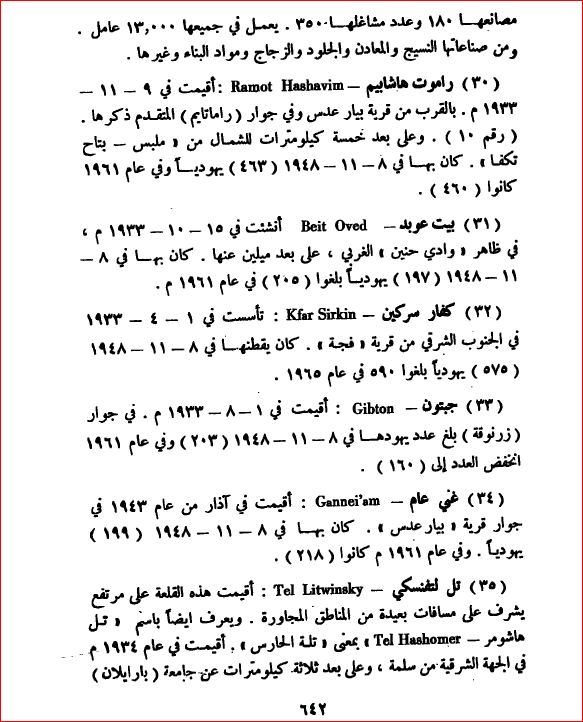 مصانعهـا ١٨٠ وعدد مشاغلهـا ٣٥٠ . يعمـل في جميعها ١٣,٠٠٠ عامل .
ومن صناعاتها النسيج والمعادن والجلود والزجاج ومواد البناء وغيرها .
(٣٠) راموت هاشابيم – Ramot Hashavim : أقيمت في ٩ – ١١ –
١٩٣٣ م . بالقرب من قرية بيار عدس وفي جوار ( راماتايم ) المتقدم ذكرها .
( رقم ١٠ ) . وعلى بعد خمسة كيلومترات للشمال من « ملبس – بتاح
تكفا » . كان بهـا في ٨ – ١١ – ١٩٤٨ ( ٤٦٣ ) يهوديـاً وفي عام ١٩٦١
كانوا ( ٤٦٠ ) .
(٣١) بيت عوبد – Beit Oved أنشئت في ١٥ – ١٠ – ١٩٣٣ م ،
في ظاهر « وادي حنين » الغربي ، على بعد ميلين عنها . كان بهـا في ٨ –
١١ – ١٩٤٨ ( ١٩٧ ) يهوديـاً بلغوا ( ٢٠٥ ) في عام ١٩٦١ م .
(٣٢) كفار سركين – Kfar Sirkin : تأسست في ١ – ٤ – ١٩٣٣
في الجنوب الشرقي من قرية « فجة » . كان يقطنهـا في ٨ – ١١ – ١٩٤٨
( ٥٧٥ ) يهودياً بلغوا ٥٩٠ في عام ١٩٦٥ .
(٣٣) جبتون – Gibton : أقيمت في ١ – ٨ – ١٩٣٣ م . في جوار
( زرنوقة ) بلغ عدد يهودهـا في ٨ – ١١ – ١٩٤٨ ( ٢٠٣ ) وفي عام ١٩٦١
انخفض العدد إلى ( ١٦٠ ) .
(٣٤) غني عام – Gannei'am : أقيمت في آذار من عام ١٩٤٣ في
جوار قرية « بيار عدس » . كان بهـا في ٨ – ١١ – ١٩٤٨ ( ١٩٩ )
يهوديـاً . وفي عام ١٩٦١ م كانوا ( ٢١٨ ) .
(٣٥) تل لتفنسكي – Tel Litwinsky : أقيمت هذه القلعة على مرتفع
يشرف على مسافات بعيدة من المناطق المجاورة . ويعرف ايضاً باسم « تـل
هاشومر – Tel Hashomer » بمعنى « تلة الحارس » . أقيمـت في عام ١٩٣٤ م
في الجهة الشرقية من سلمة ، وعلى بعد ثلاثة كيلومترات عن جامعة ( بارايلان )
٦٤٢